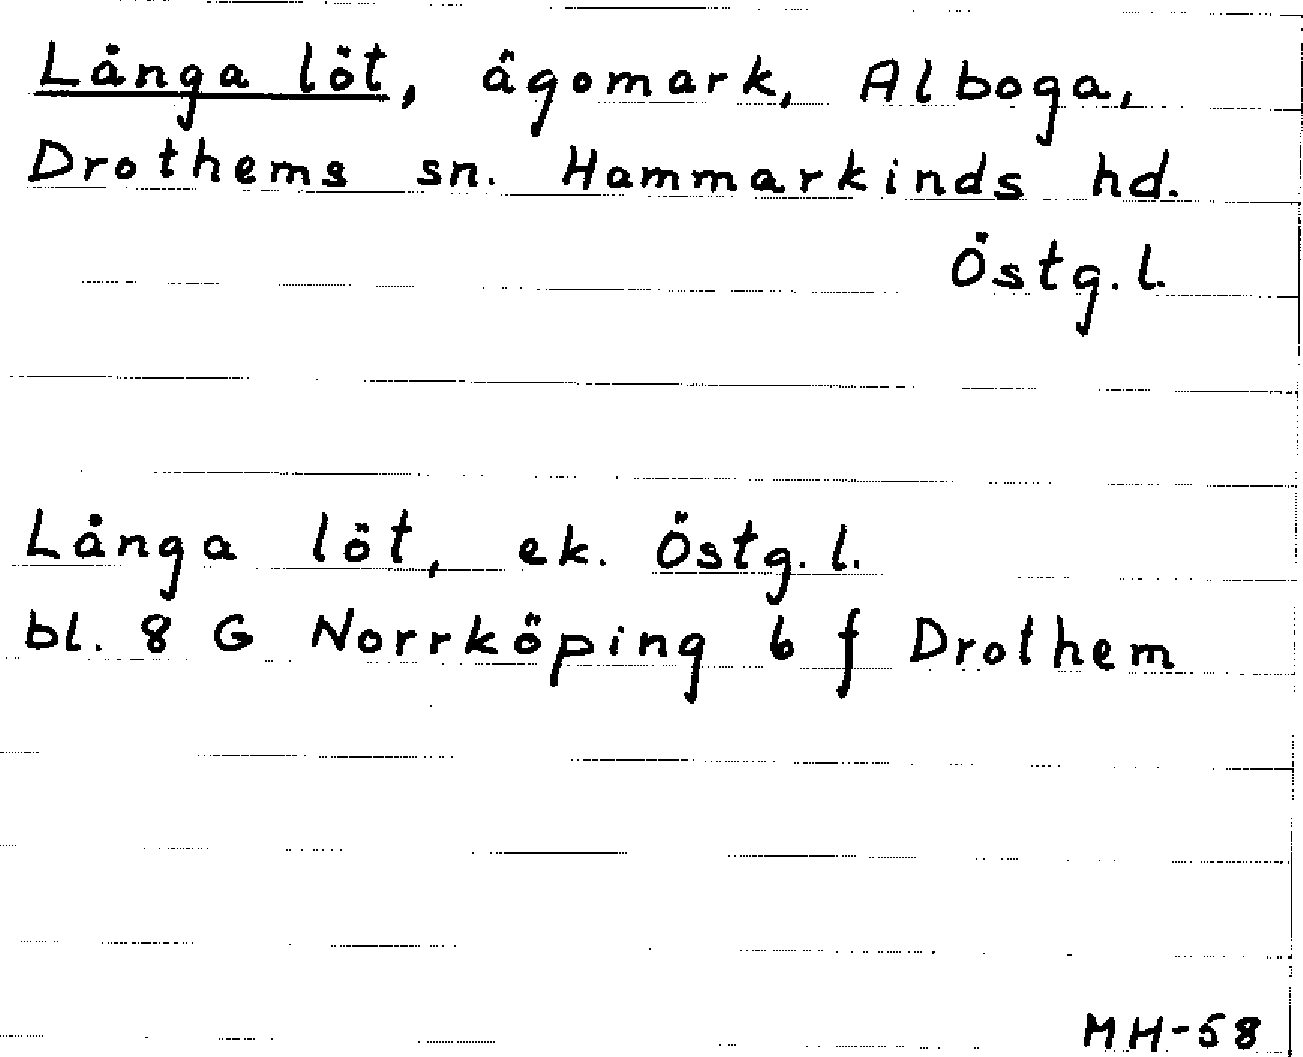 Långa löt, ägomark, Alboga,
Drothems sn. Hammarkinds hd.
Östg.l.
Långa löt, ek. Östg.l.
bl. 8 G Norrköping 6 f Drothem
MH-58